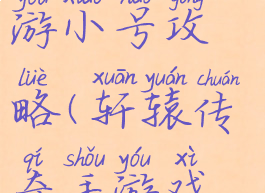 yóu xiǎo hào gōng
游小号攻
lüè xuān yuán chuán
略(轩辕传
qí shǒu yóu xì
奇手游戏